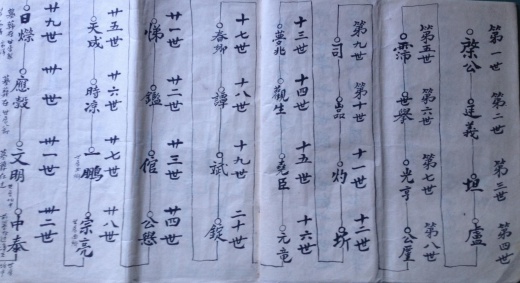 第一世 第二世 第三世 第四世
榮公 廷義 垣 盧
第五世 第六世 第七世 第八世
霈 世舉 光亨 公屋
第九世 第十世 十一世 十二世
司 灼 圻
十三世 十四世 十五世 十六世
夢兆 觀生 堯臣 元竜
十七世 十八世 十九世 二十世
春卿 譚 斌 錠
廿一世 廿二世 廿三世 廿四世
悌 鑑 倌 公懸
廿五世 廿六世 廿七世 廿八世
天成 時凉 一鵬 宗亮
廿九世 卅世 卅一世 卅二世
日燦 應穀 文明 中泰